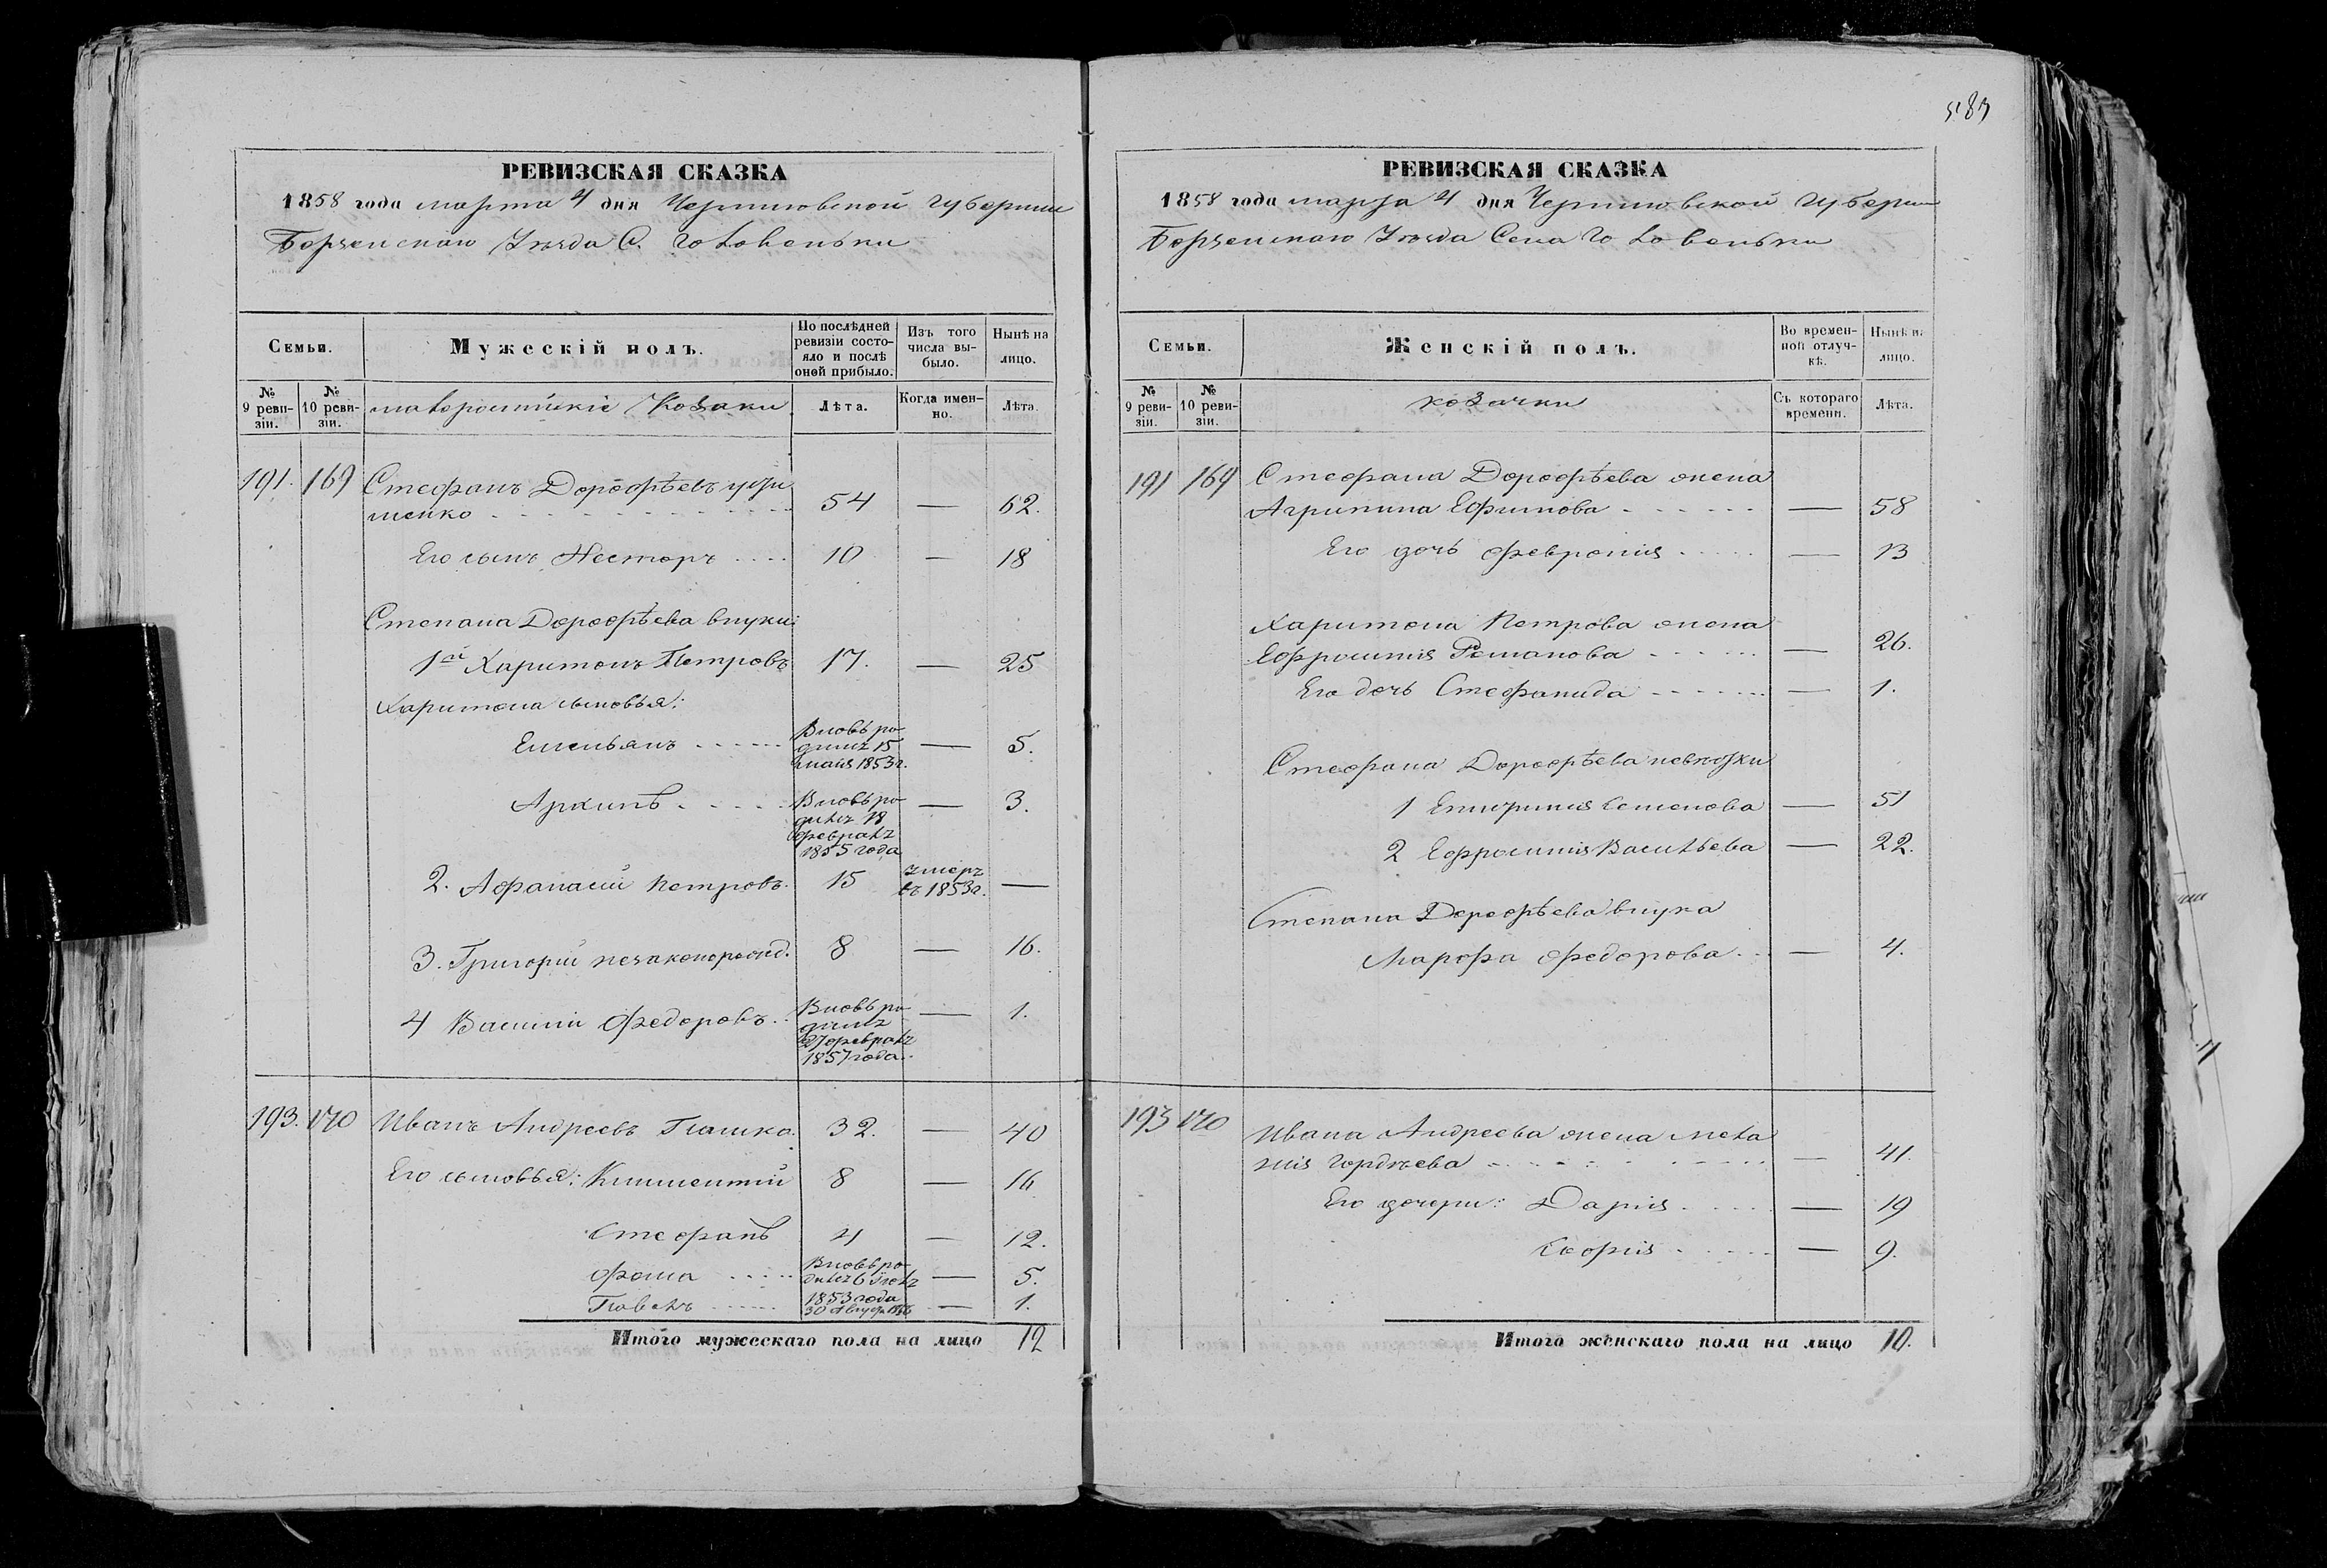 583
РЕВИЗСКАЯ СКАЗКА
1858 года марта 4 дня Черниговской губернии
Борзенскаго Уѣзда С. Головеньки
Семьи.
Мужескій полъ.
По послѣдней ревизіи состояло и послѣ оной прибыло.
Изъ того числа выбыло.
Нынѣ на лицо.
№ 9 ревизіи.
№ 10 ревизіи.
малороссійскіе Козаки
Лѣта.
Когда именно.
Лѣта.
191. 169 Стефанъ Дорофѣевъ
менко 54 — 62.
Его сынъ Несторъ 10 — 18
Степана Дорофѣева внуки:
1й Харитонъ Петровъ 17. — 25
Харитона сыновья:
Емельянъ Вновь родился 15 мая 1853г. — 5.
Архипъ Вновь родился 18 февраля 1855 года — 3.
2. Афанасій Петровъ. 15 умеръ въ 1853г. —
3. Григорій незаконорожд. 8 — 16.
4 Василій Федоровъ Вновь родился 27 февраля 1857 года. — 1.
193. 170 Иванъ Андреевъ Пашко. 32. — 40
Его сыновья: Климентій 8 — 16
Стефанъ 4 — 12.
Фома Вновь родился 6 Іюля 1853 года — 5.
Павелъ 30 Август 1856 — 1.
Итого мужескаго пола на лицо 12
РЕВИЗСКАЯ СКАЗКА
1858 года марта 4 дня Черниговской губернии
Борзенскаго Уѣзда Села Головеньки
Семьи.
Женскій полъ.
Во временной отлучкѣ.
Нынѣ на лицо.
№ 9 ревизіи.
№ 10 ревизіи.
козачки
Съ котораго времени.
Лѣта.
191 169 Стефана Дорофѣева жена
Агрипина Ефимова — 58
Его дочь Февронія — 13
Харитона Петрова жена
Ефросинія Романова — 26.
Его дочь Стефанида — 1.
Стефана Дорофѣева невѣстки
1 Семенова — 51
2 Ефросинія Васильева — 22.
Степана Дорофѣева внука
Марфа Федорова — 4.
193 170 Ивана Андреева жена Мела
нія Гордѣева — 41.
Его дочери: Дарія — 19
Софія — 9.
Итого женскаго пола на лицо 10.